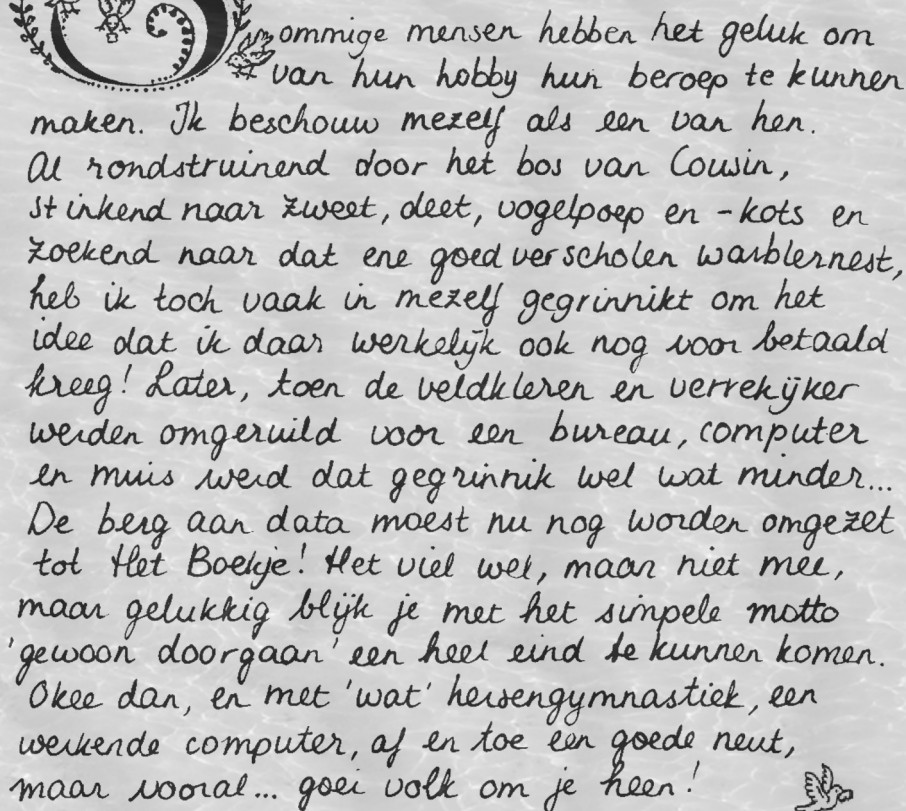 Sommige mensen hebben het geluk om
van hun hobby hun beroep te kunnen
maken. Ik beschouw mezelf als een van hen.
Al rondstruinend door het bos van Cousin,
stinkend naar zweet, deet, vogelpoep en -kots en
zoekend naar dat ene goed verscholen warblernest,
heb ik toch vaak in mezelf gegrinnikt om het
idee dat ik daar werkelijk ook nog voor betaald
kreeg! Later, toen de veldkleren en verrekijker
werden omgeruild voor een bureau, computer
en muis werd dat gegrinnik wel wat minder...
De berg aan data moest nu nog worden omgezet
tot Het Boekje! Het viel wel, maar niet mee,
maar gelukkig blijk je met het simpele motto
'gewoon doorgaan' een heel eind te kunnen komen.
Okee dan, en met 'wat' hersengymnastiek, een
werkende computer, af en toe een goede neut,
maar vooral... goei volk om je heen!